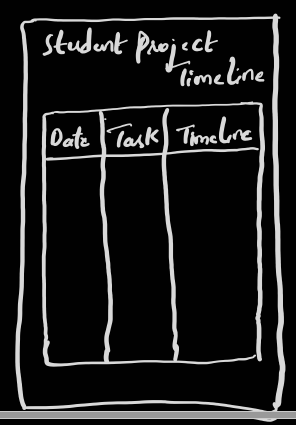 Student Project
Timeline
Date Task Timeline